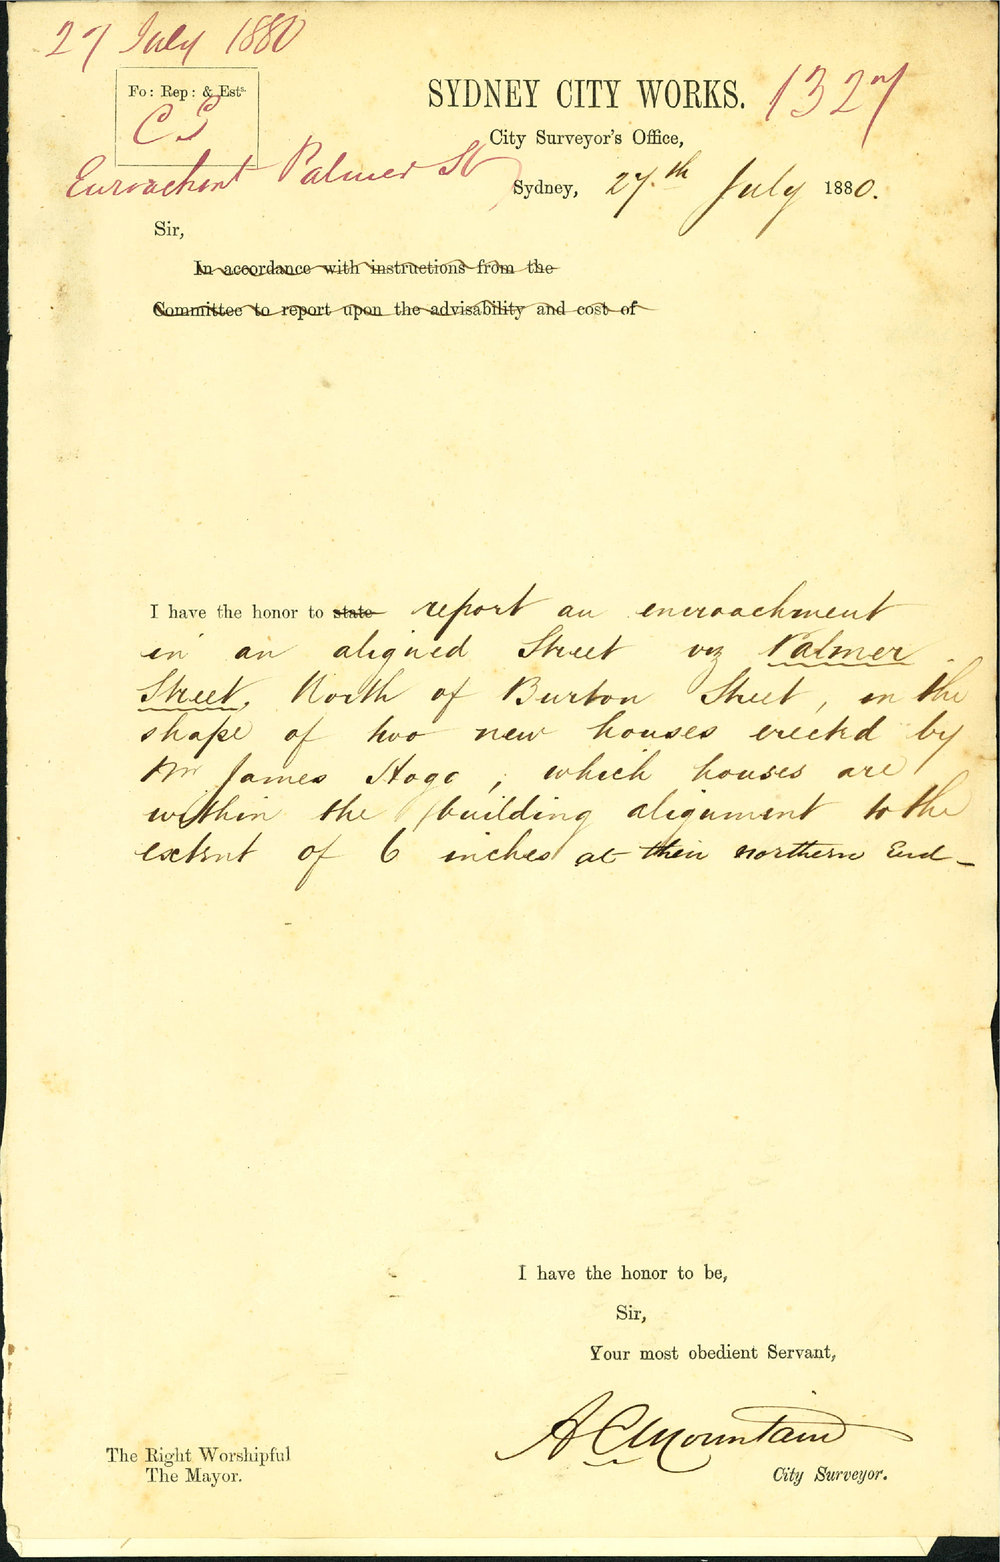 27 July 1880
Fo: Rep: & Ests.
CS
SYDNEY CITY WORKS. 1327
City Surveyor's Office,
Encroachmt Palmer St
Sydney, 27th July 1880.
Sir,
In accordance with instructions from the
Committee to report upon the advisability and cost of
I have the honor to state report an encroachment
in an aligned Street viz Palmer
Street, North of Burton Street, in the
shape of two new houses erected by
Mr James Hogg, which houses are
within the building alignment to the
extent of 6 inches at their northern End -
I have the honor to be,
Sir,
Your most obedient Servant,
A C Mountain
City Surveyor.
The Right Worshipful
The Mayor.